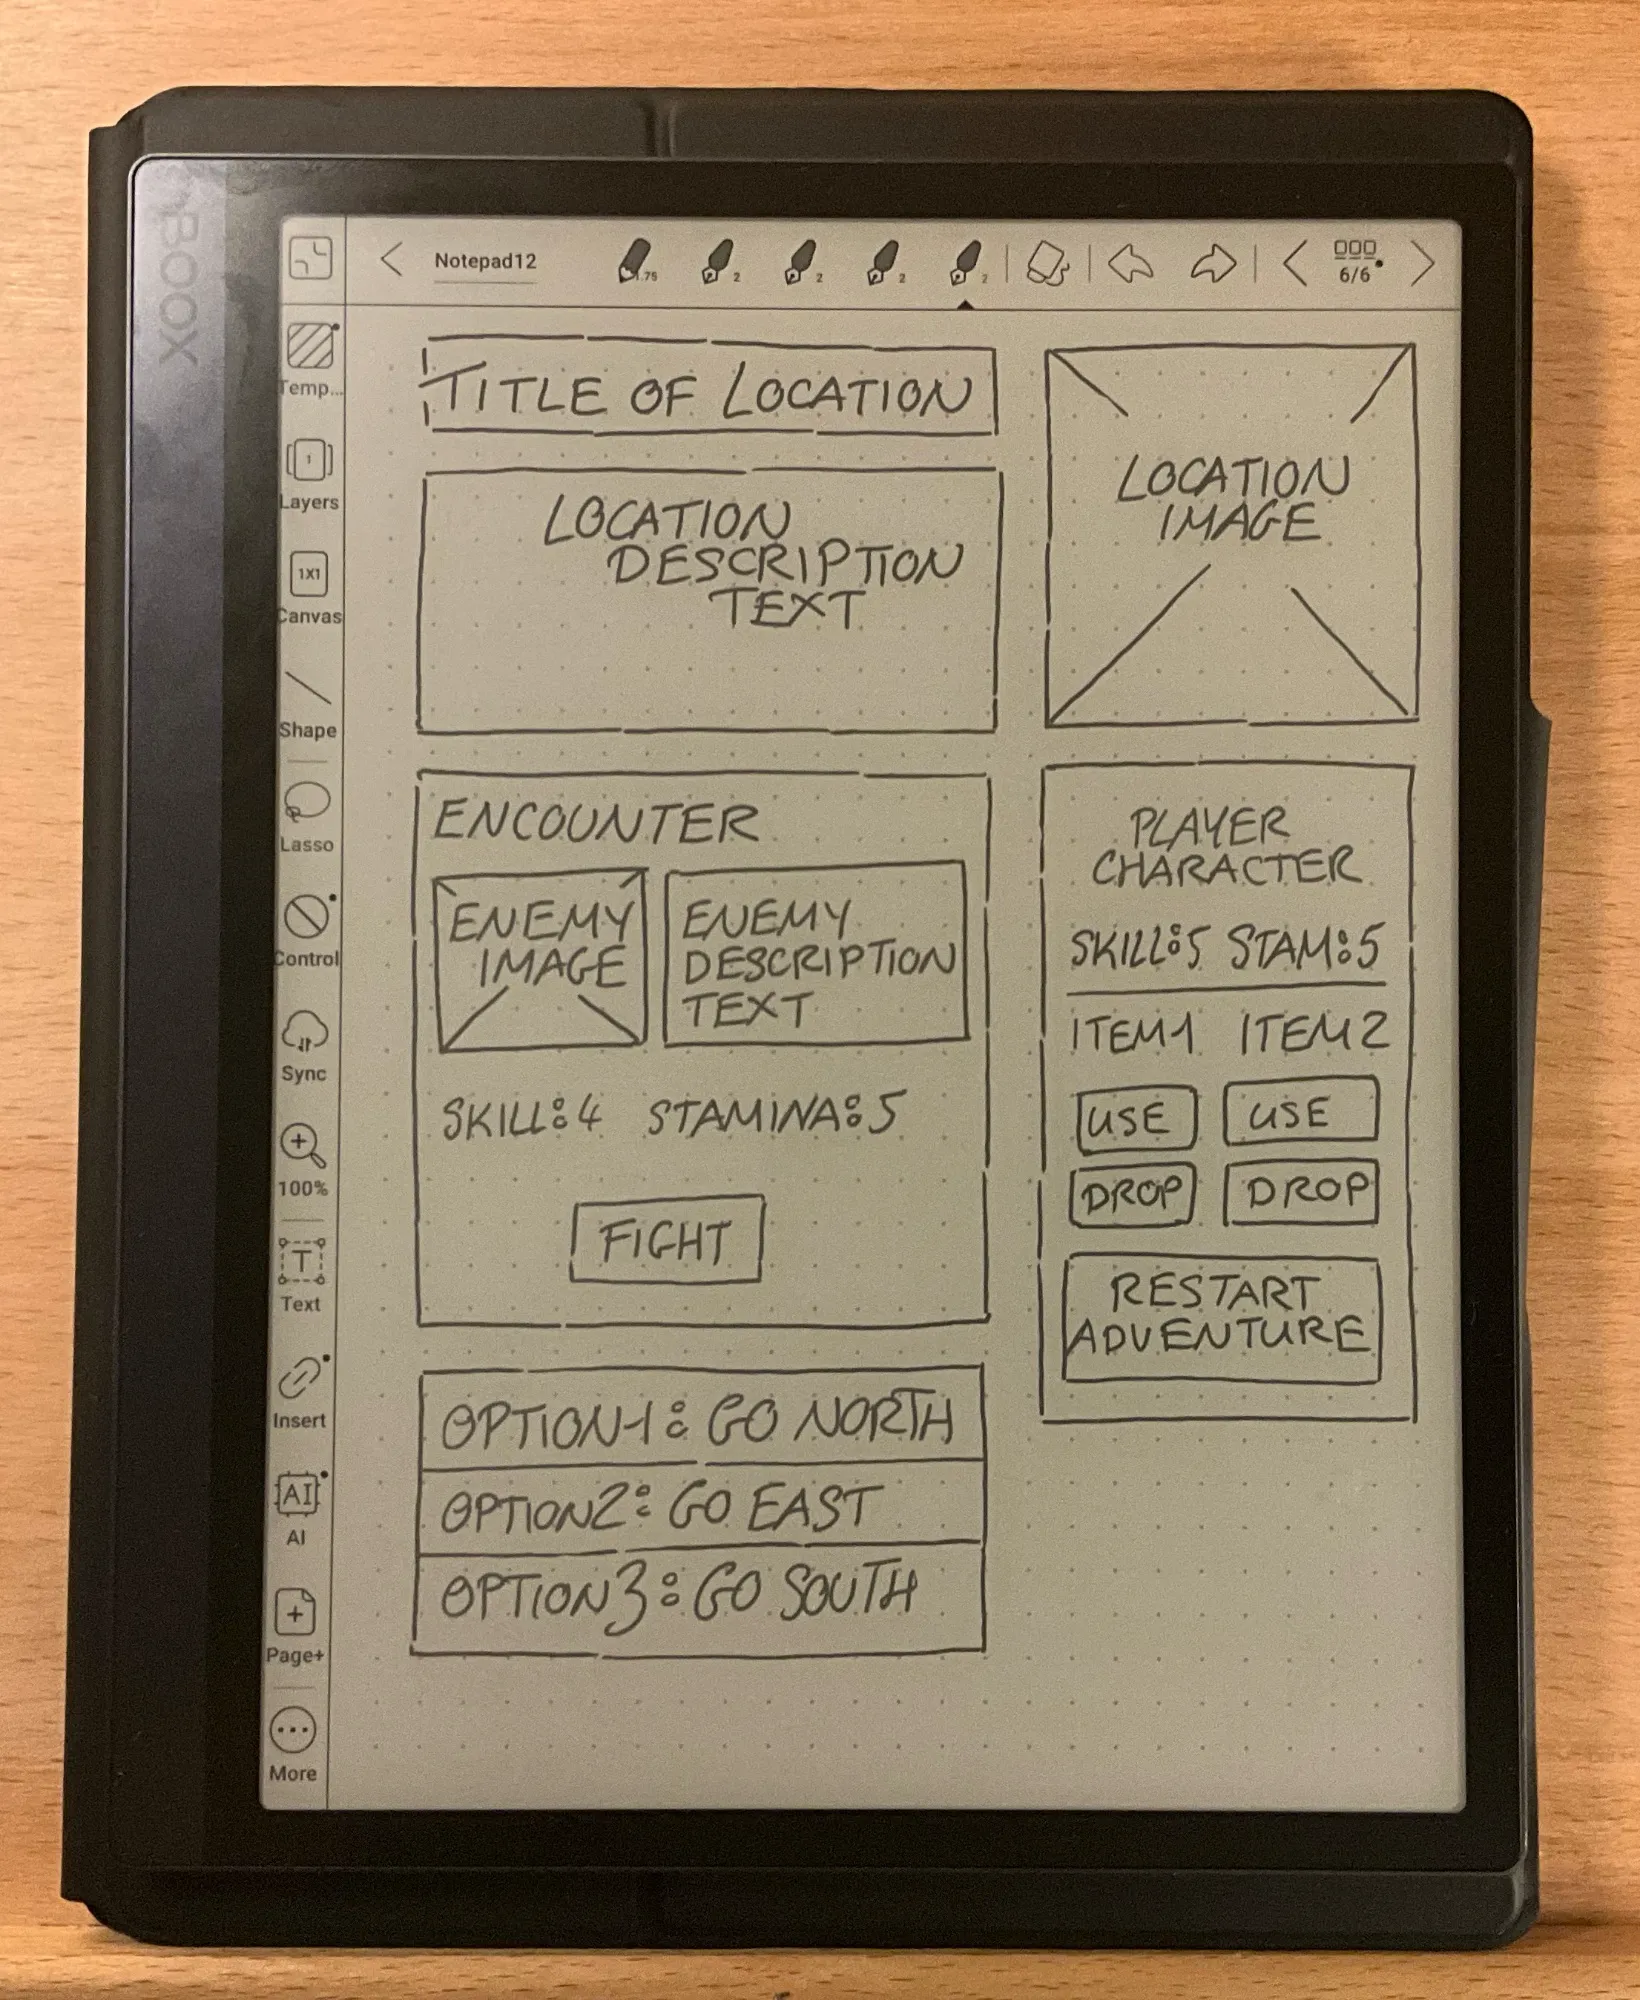 BOOX
Notepad12
1.75
2
2
2
2
6/6
Temp...
1
Layers
1X1
Canvas
Shape
Lasso
Control
Sync
100%
T
Text
Insert
AI
AI
Page+
More
TITLE OF LOCATION
LOCATION
DESCRIPTION
TEXT
LOCATION
IMAGE
ENCOUNTER
ENEMY
IMAGE
ENEMY
DESCRIPTION
TEXT
SKILL:4 STAMINA:5
FIGHT
OPTION1: GO NORTH
OPTION2: GO EAST
OPTION3: GO SOUTH
PLAYER
CHARACTER
SKILL:5 STAM:5
ITEM1 ITEM2
USE USE
DROP DROP
RESTART
ADVENTURE